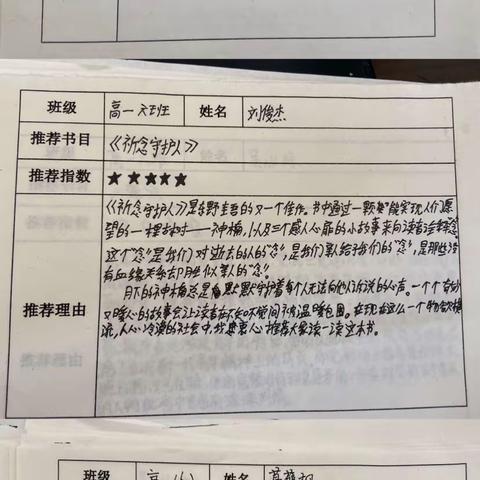 班级 高一 班 姓名 刘俊杰
推荐书目 《祈念守护人》
推荐指数 ★★★★★
推荐理由
《祈念守护人》是东野圭吾的又一个佳作。书中通过一颗能实现人们愿
望的一棵树——神楠,以及三个感人心扉的小故事来向读者诠释念
这个"念"是我们对逝去的人的"念",是我们累给我们的"念",是那些没有
血缘关系去 月 似亲人的"念"。
月下的神楠总是 默默守护着每个人无法向他人诉说的心声。一个个奇妙
又暖心的故事会让读者在不知不觉间被温暖包围。在现在这么一个物欲横
流,人心冷漠的社会中,我 衷心推荐大家读一读这本书。
班级 高一 姓名